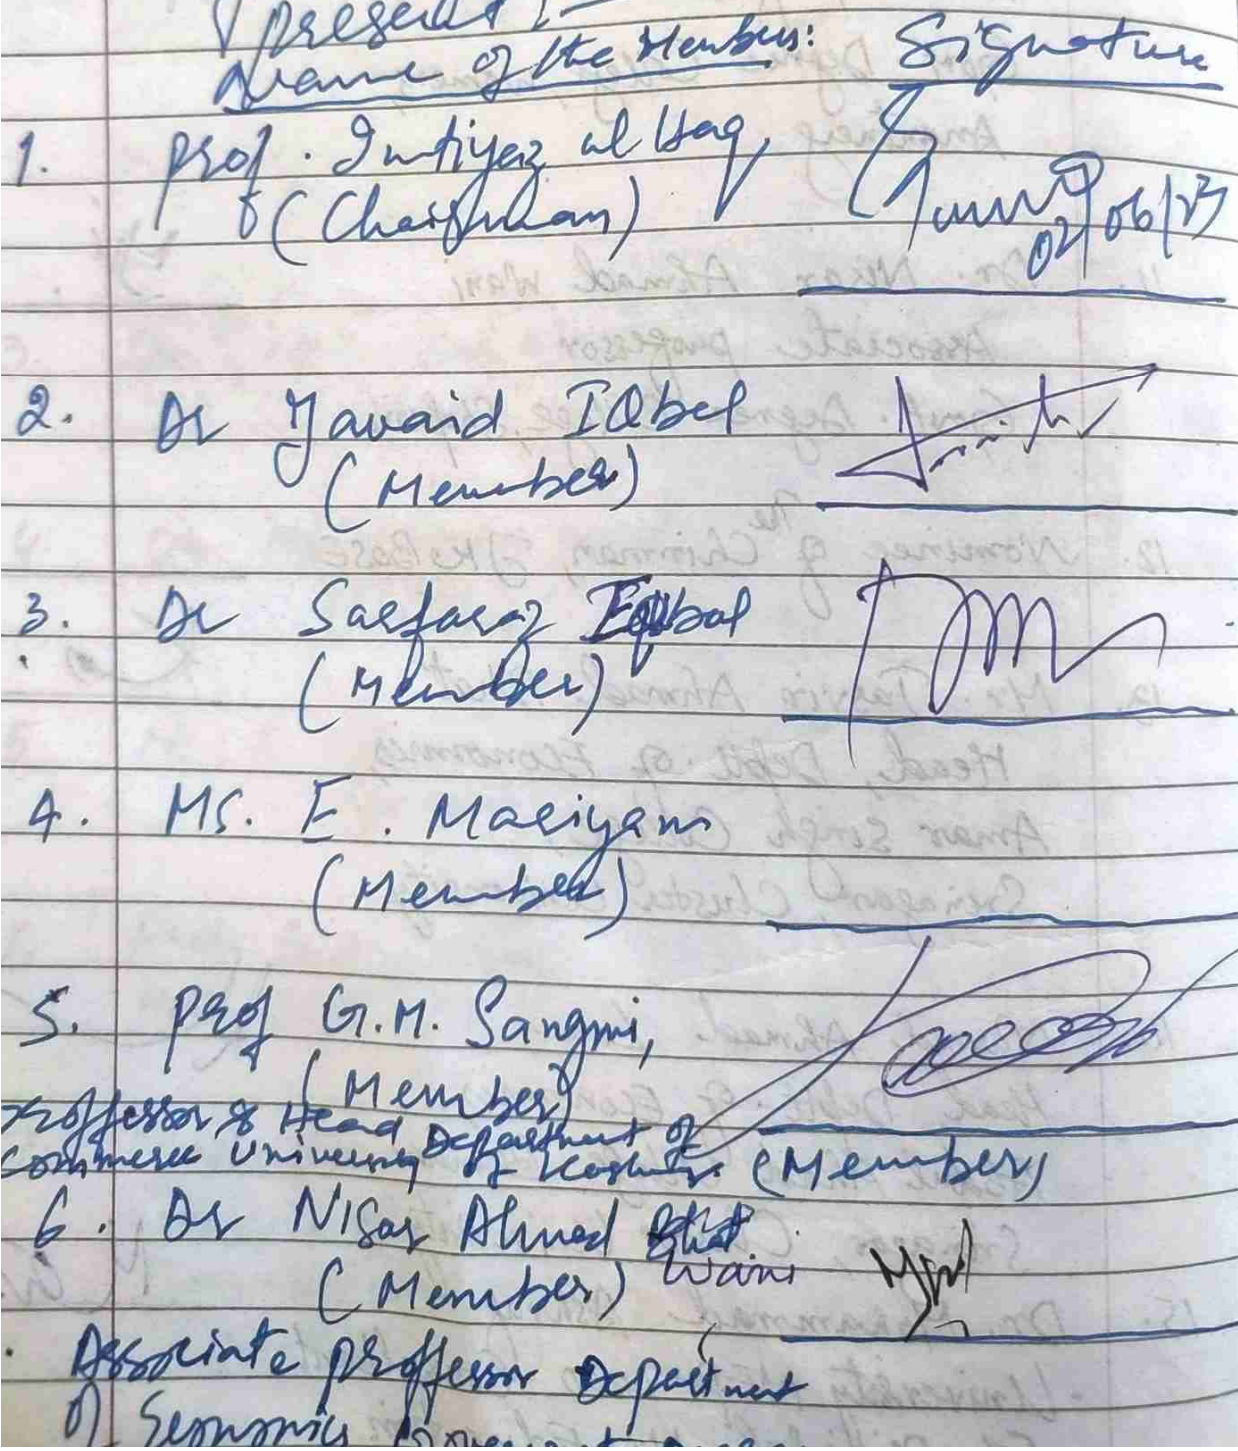 present :-
Name of the Members: Signature
1. Prof. Imtiyaz ul Haq,
(Chairman) 02/06/23
2. Dr Javaid IQbal
(Member)
3. Dr Sarfaraz Iqbal
(Member)
4. Ms. E. Mariyam
(Member)
5. Prof G.M. Sangmi,
(Member)
Proffessor & Head Department of
Commerce University of Kashmir (Member)
6. Dr Nisar Ahmad Bhat
(Member) Wani
Associate proffessor Department
of Economics Government